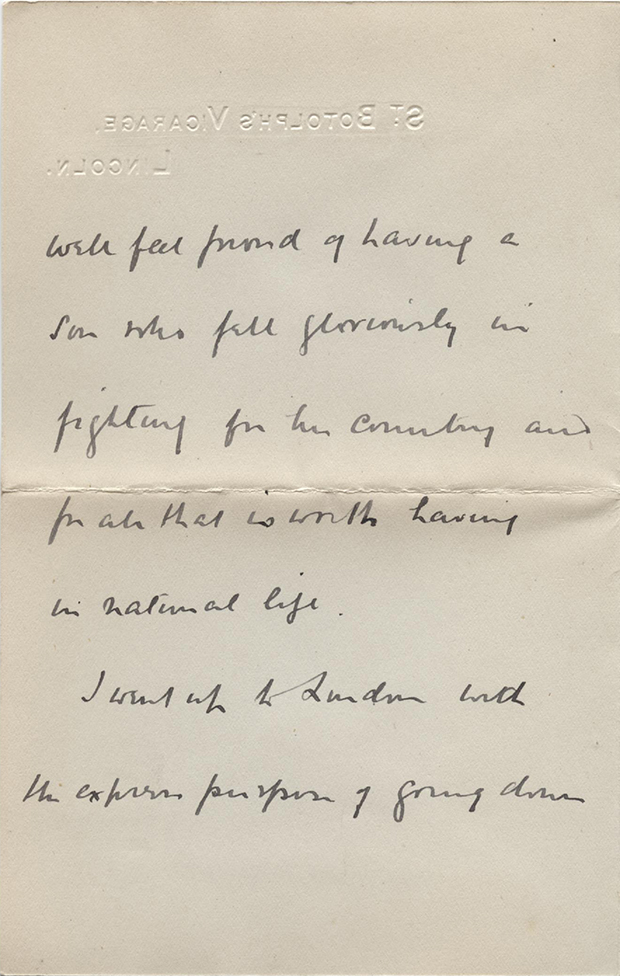 ST BOTOLPH'S VICARAGE,
LINCOLN.
well feel proud of having a
son who fell gloriously in
fighting for his country and
for all that is worth having
in national life.
I went up to London with
the express purpose of going down